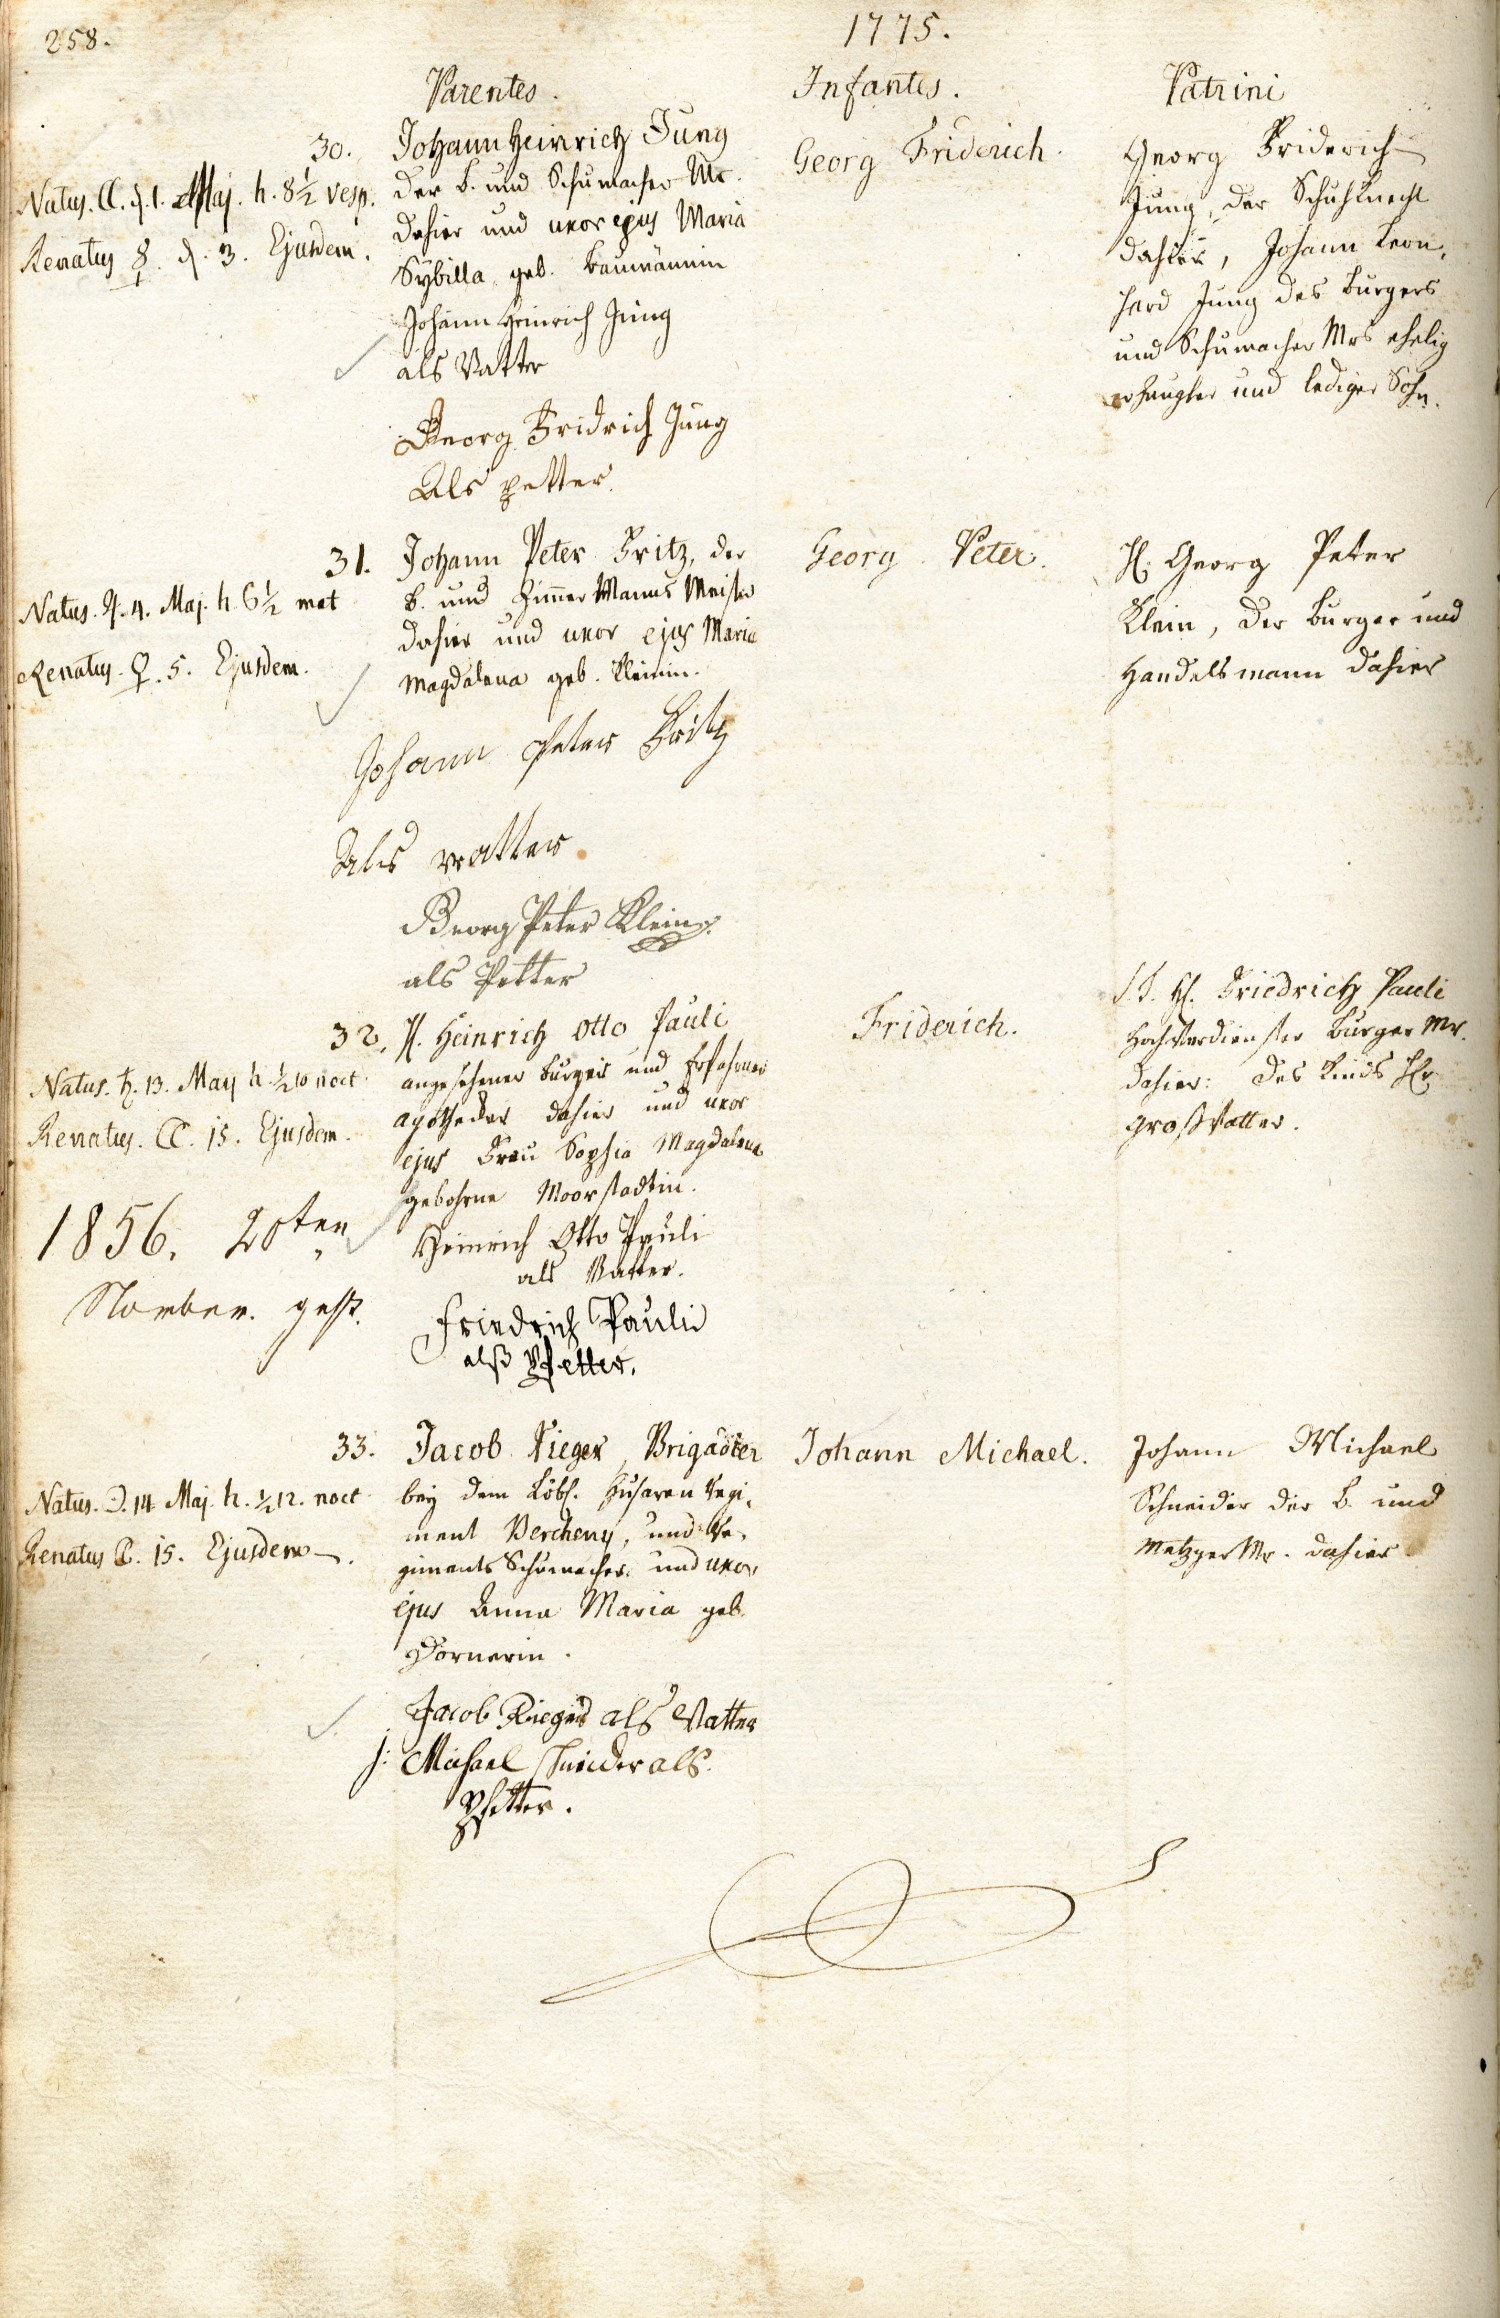 258.
1775.
Parentes.
Infantes.
Patrini
30.
Natus. ☾. d. 1. Maj. h. 8½ vesp.
Renatus ☿. d. 3. Ejusdem.
Johann Heinrich Jung
der b. und Schumacher Mr.
dahier und uxor ejus Maria
Sybilla, geb. Baumännin
Johann Heinrich Jung
als Vatter
Georg Fridrich Jung
Als petter.
Georg Friderich.
Georg Friderich
Jung, der Schuhknecht
dahier, Johann Leon,
hard Jung des burgers
und Schumacher Mrs ehelig
erzeugter und lediger Sohn.
31.
Natus. ♃. 4. Maj. h. 6½ mat
Renatus. ♀. 5. Ejusdem.
Johann Peter Fritz, der
b. und Zimmer Manns Meister
dahier und uxor ejus Maria
Magdalena geb. Kleinin.
Johann Peter Fritz
Als vatter
Georg Peter Klein
als Petter
Georg Peter.
H. Georg Peter
Klein, der burger und
Handelsmann dahier
32.
Natus. ♄. 13. May h. ½10 noct
Renatus. ☾. 15. Ejusdem.
1856. 20ten
November. gest.
H. Heinrich Otto Pauli
angesehener burger und Erfahrner
apotheker dahier und uxor
ejus Frau Sophia Magdalena
gebohrne Moorstadtin.
Heinrich Otto Pauli
als Vatter.
Friedrich Pauli
alß Pfetter.
Friderich.
S. T. H. Friedrich Pauli
Hochverdienster Burger Mr.
dahier: des Kinds Hr
Großvatter.
33.
Natus. ☉. 14 Maj. h. ½12. noct
Renatus ☾. 15. Ejusdem.
Jacob Rieger, Brigadier
bey dem Löbl. Husaren Regi,
ment Bercheny, und Re,
giments Schumacher und uxor
ejus Anna Maria geb.
Dornerin.
Jacob Rieger als Vatter
J: Michael Schneider als
Pfetter.
Johann Michael.
Johann Michael
Schneider der b. und
Metzger Mr. dahier